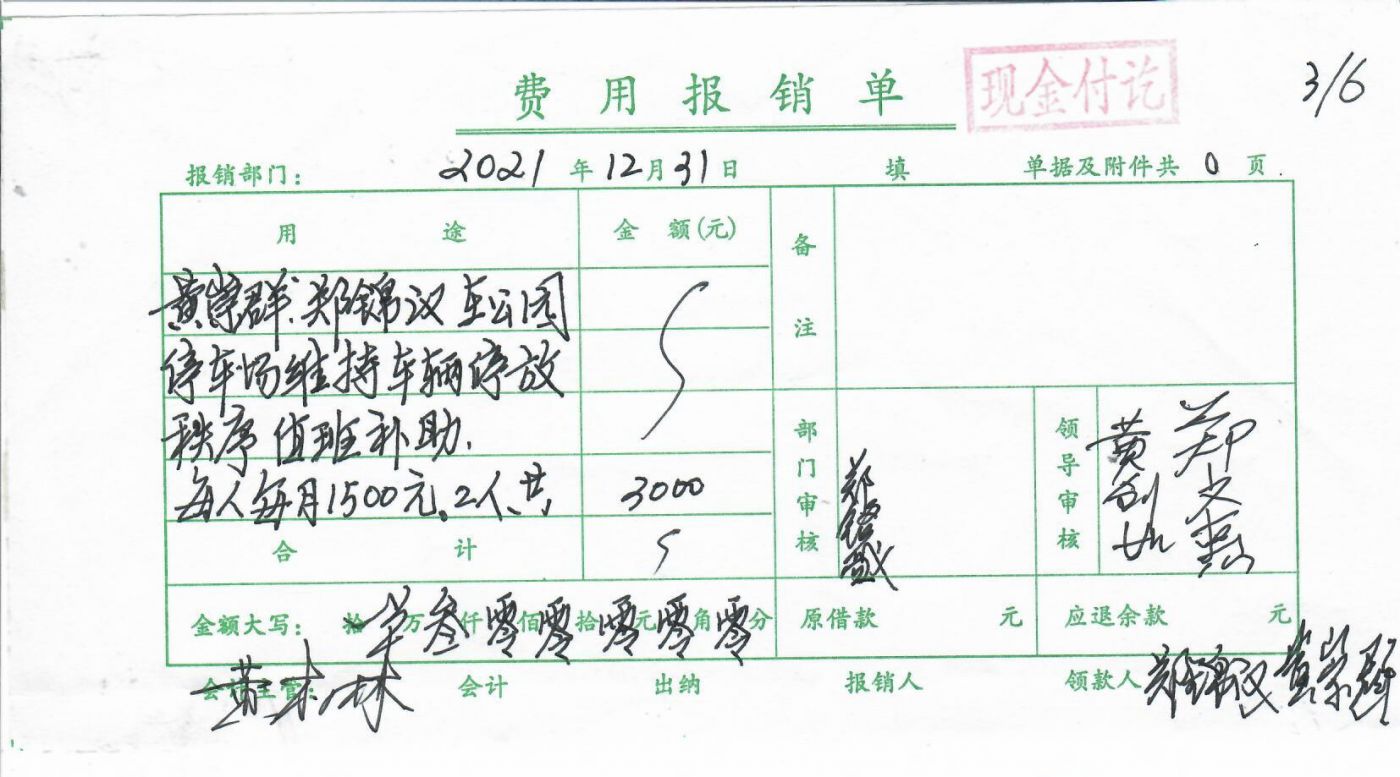 费用报销单
现金付讫
3/6
报销部门: 2021年12月31日 填 单据及附件共0页
用途 金额(元) 备注
黄崇群、郑锦议在公园
停车场维持车辆停放
秩序值班补助.
每人每月1500元。2人、共 3000
合计
部门审核 郑
领导审核 黄 郑文
金额大写: 拾 万叁仟零佰零拾零元零角零分 原借款 元 应退余款 元
会计主管: 黄木林 会计 出纳 报销人 领款人 郑锦议 黄崇群